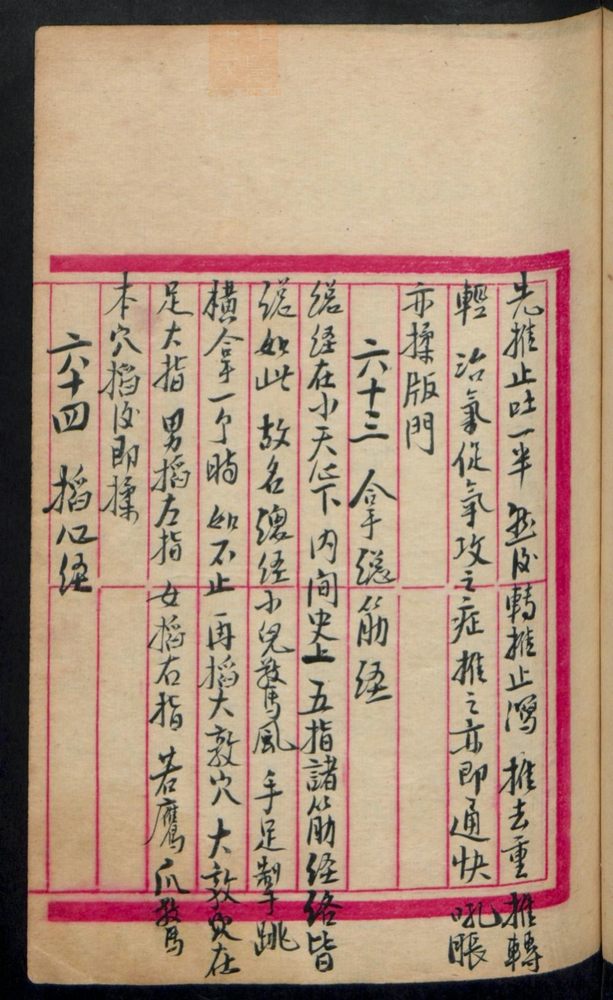 先推止吐一半 然後轉推止瀉 推去重 推轉
輕 治氣促氣攻之症推之亦即通快 吼脹
亦揉版門
六十三 拿總筋経
総経在小天心下 内間史上 五指諸筋経絡皆
総如此 故名總経小兒驚風 手足掣跳
橫拿一个時 如不止 再掐大敦穴 大敦穴在
足大指 男掐左指 女掐右指 若鷹爪驚
本穴掐後即揉
六十四 掐心経